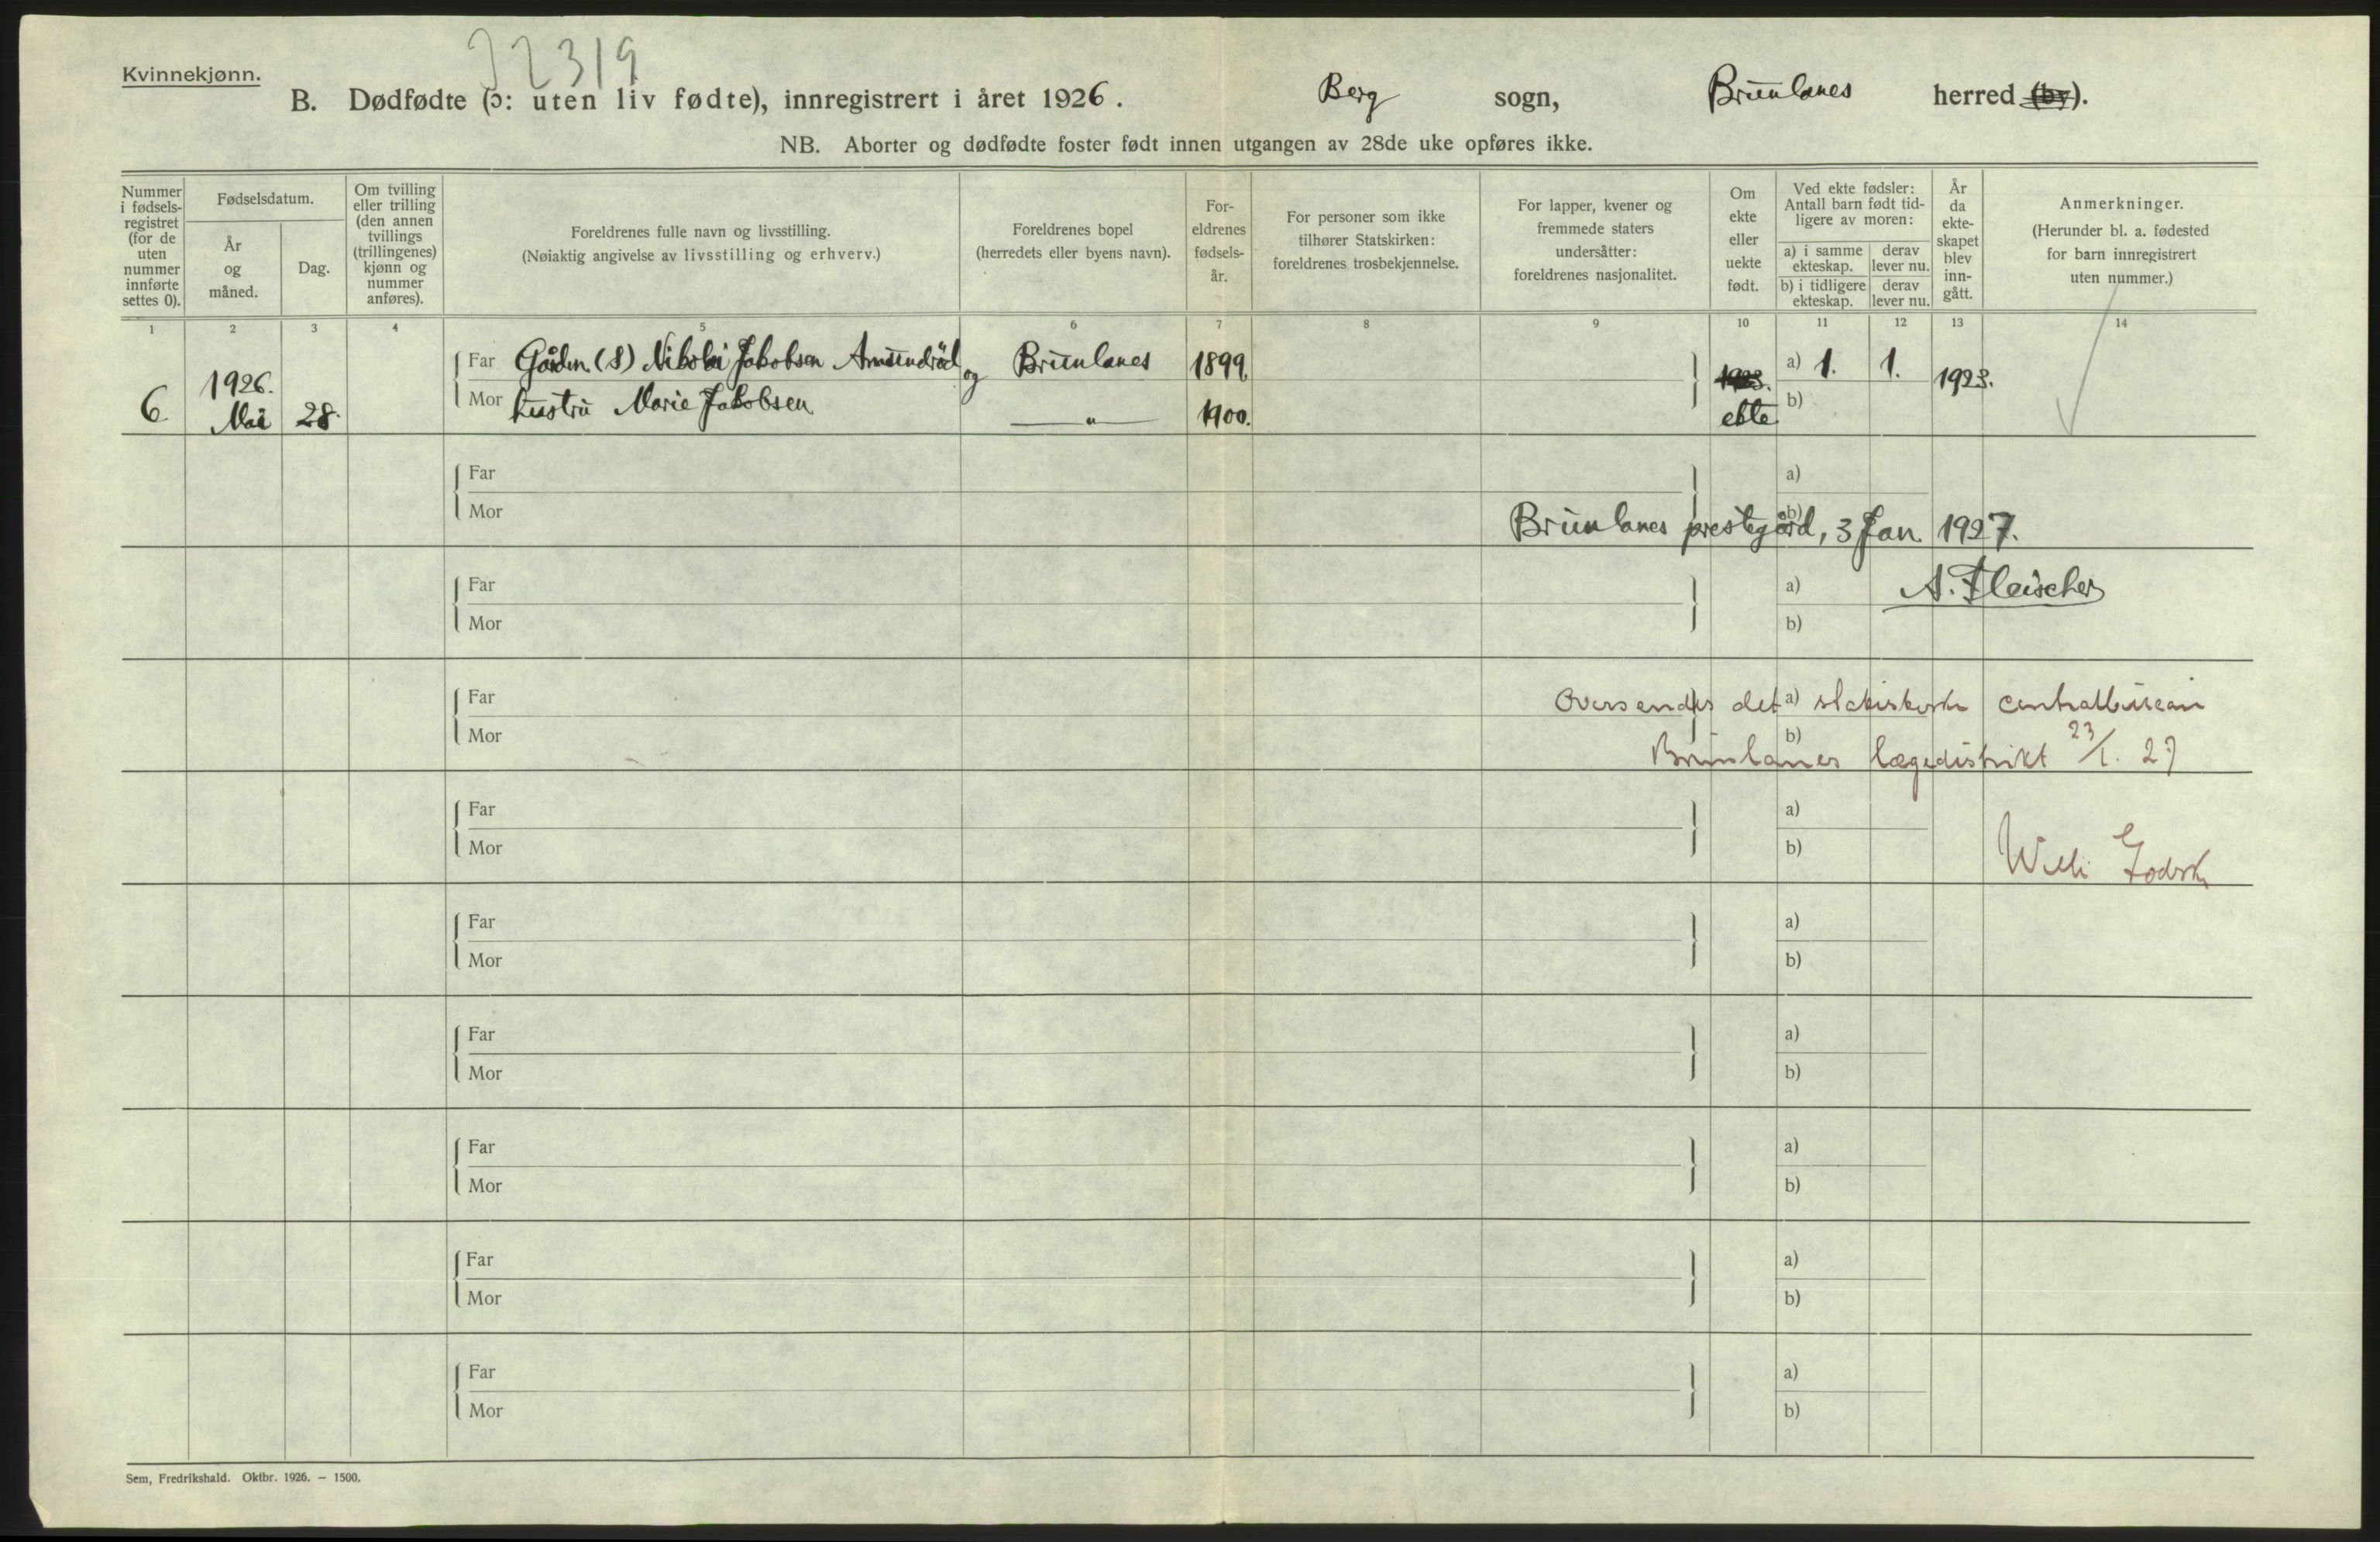 J2319
Kvinnekjønn.
B. Dødfødte (ɔ: uten liv fødte), innregistrert i året 1926. Berg sogn, Brunlanes herred (by).
NB. Aborter og dødfødte foster født innen utgangen av 28de uke opføres ikke.
Nummer i fødsels-registret (for de uten nummer innførte settes 0).
Fødselsdatum.
År og måned.
Dag.
Om tvilling eller trilling (den annen tvillings (trillingenes) kjønn og nummer anføres).
Foreldrenes fulle navn og livsstilling.
(Nøiaktig angivelse av livsstilling og erhverv.)
Foreldrenes bopel
(herredets eller byens navn).
For-eldrenes fødsels-år.
For personer som ikke tilhører Statskirken: foreldrenes trosbekjennelse.
For lapper, kvener og fremmede staters undersåtter: foreldrenes nasjonalitet.
Om ekte eller uekte født.
Ved ekte fødsler: Antall barn født tid-ligere av moren:
a) i samme ekteskap. derav lever nu.
b) i tidligere ekteskap. derav lever nu.
År da ekte-skapet blev inn-gått.
Anmerkninger.
(Herunder bl. a. fødested for barn innregistrert uten nummer.)
1 2 3 4 5 6 7 8 9 10 11 12 13 14
Far Gårdm. (S) Nikolai Jakobsen Amundrød og Brunlanes 1899. 1923. a) 1. 1. 1923.
6. 1926. Mai 28. Mor hustru Marie Jakobsen —„— 1900. ekte b)
Far a)
Mor b)
Brunlanes prestegård, 3 Jan 1927.
Far a) A. Fleischer
Mor b)
Far a)
Oversendes det statistiske centralbureau
Mor b)
Brunlanes lægedistrikt 23/1. 27
Far a)
Mor b)
Willi
Far a)
Mor b)
Far a)
Mor b)
Far a)
Mor b)
Far a)
Mor b)
Far a)
Mor b)
Sem, Fredrikshald. Oktbr. 1926. — 1500.